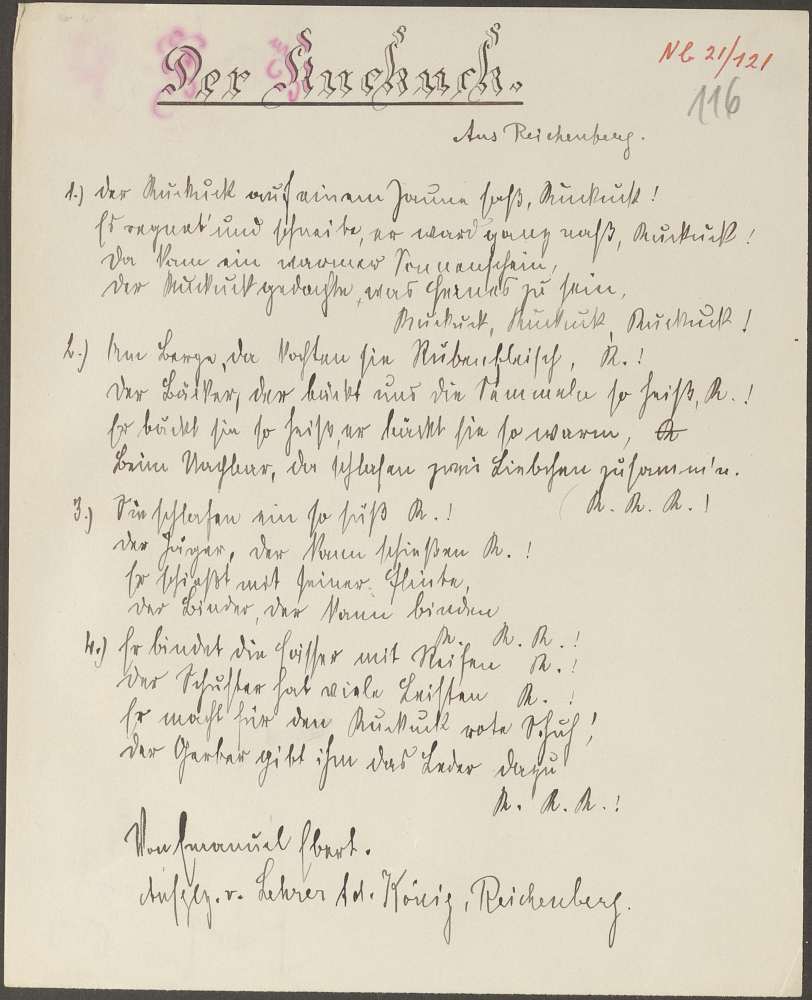 Nb 21/121
Der Kuckuck.
116
Aus Reichenberg.
1.) Der Kuckuck auf einem Zaune saß, Kuckuck!
Es regnet' und schneite, er ward ganz naß, Kuckuck!
Da kam ein warmer Sonnenschein,
Der Kuckuck gedachte, was zu sein,
Kuckuck, Kuckuck, Kuckuck!
2.) Am Berge, da kochten sie Rübenfleisch, K.!
Der Bäcker, der bäckt uns die Semmeln so heiß, K.!
Er bäckt sie so heiß, er bäckt sie so warm,
Beim Nachbar, da schlafen zwei Liebchen zusamm'n.
K. K. K.!
3.) Sie schlafen ein so süß K.!
Der Jäger, der kann schießen K.!
Er schießt mit seiner Flinte,
Der Binder, der kann binden
K. K. K.!
4.) Er bindet die Fässer mit Reifen K.!
Der Schuster hat viele Leisten K.!
Er macht für den Kuckuck rote Schuh!
Der Gerber gibt ihm das Leder dazu
K. K. K.!
Von Emanuel Ebert.
v. Lehrer Ad. König, Reichenberg.